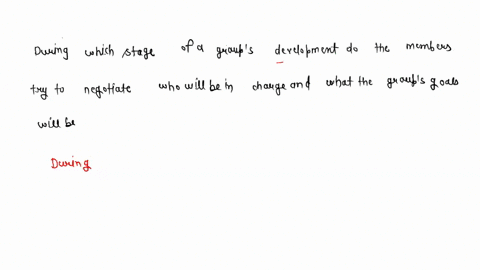 During which stage of a group's development do the members
try to negotiate who will be in charge and what the group's goals
will be
During